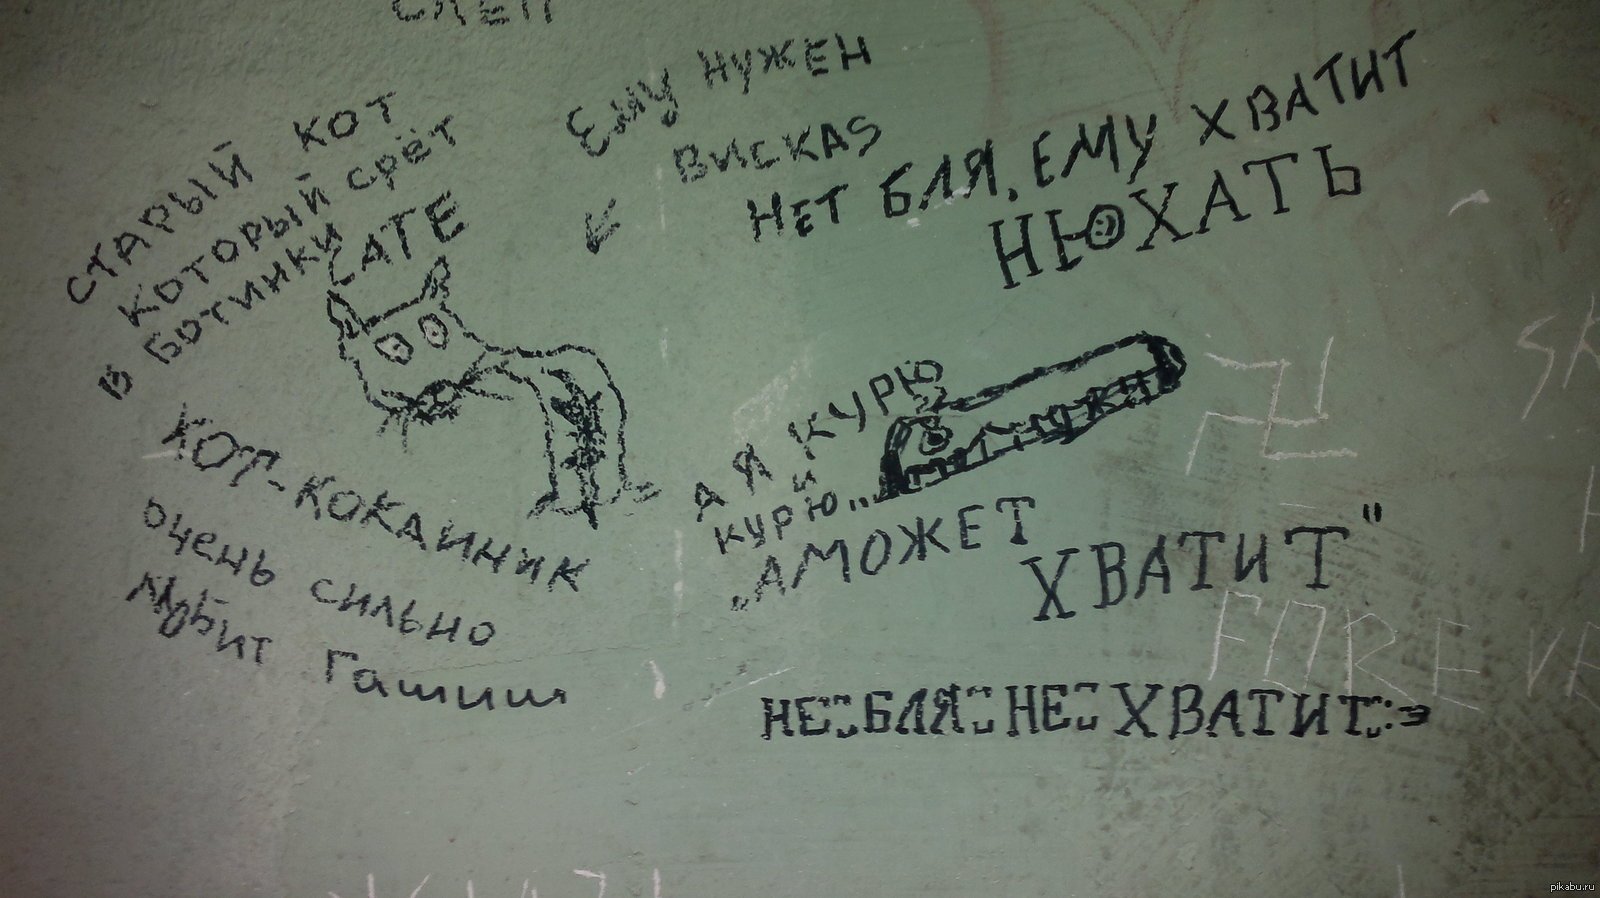 СТАРЫЙ КОТ
КОТОРЫЙ СРЁТ
В БОТИНКИ
CATE
Ему НУЖЕН
ВИСКАS
НЕТ БЛЯ, ЕМУ ХВАТИТ
НЮХАТЬ
КОТ-КОКАИНИК
очень сильно
любит Гашиш
А Я КУРЮ
И
КУРЮ...
„АМОЖЕТ
ХВАТИТ"
НЕ БЛЯ НЕ ХВАТИТ :-Э
FOREVER
pikabu.ru